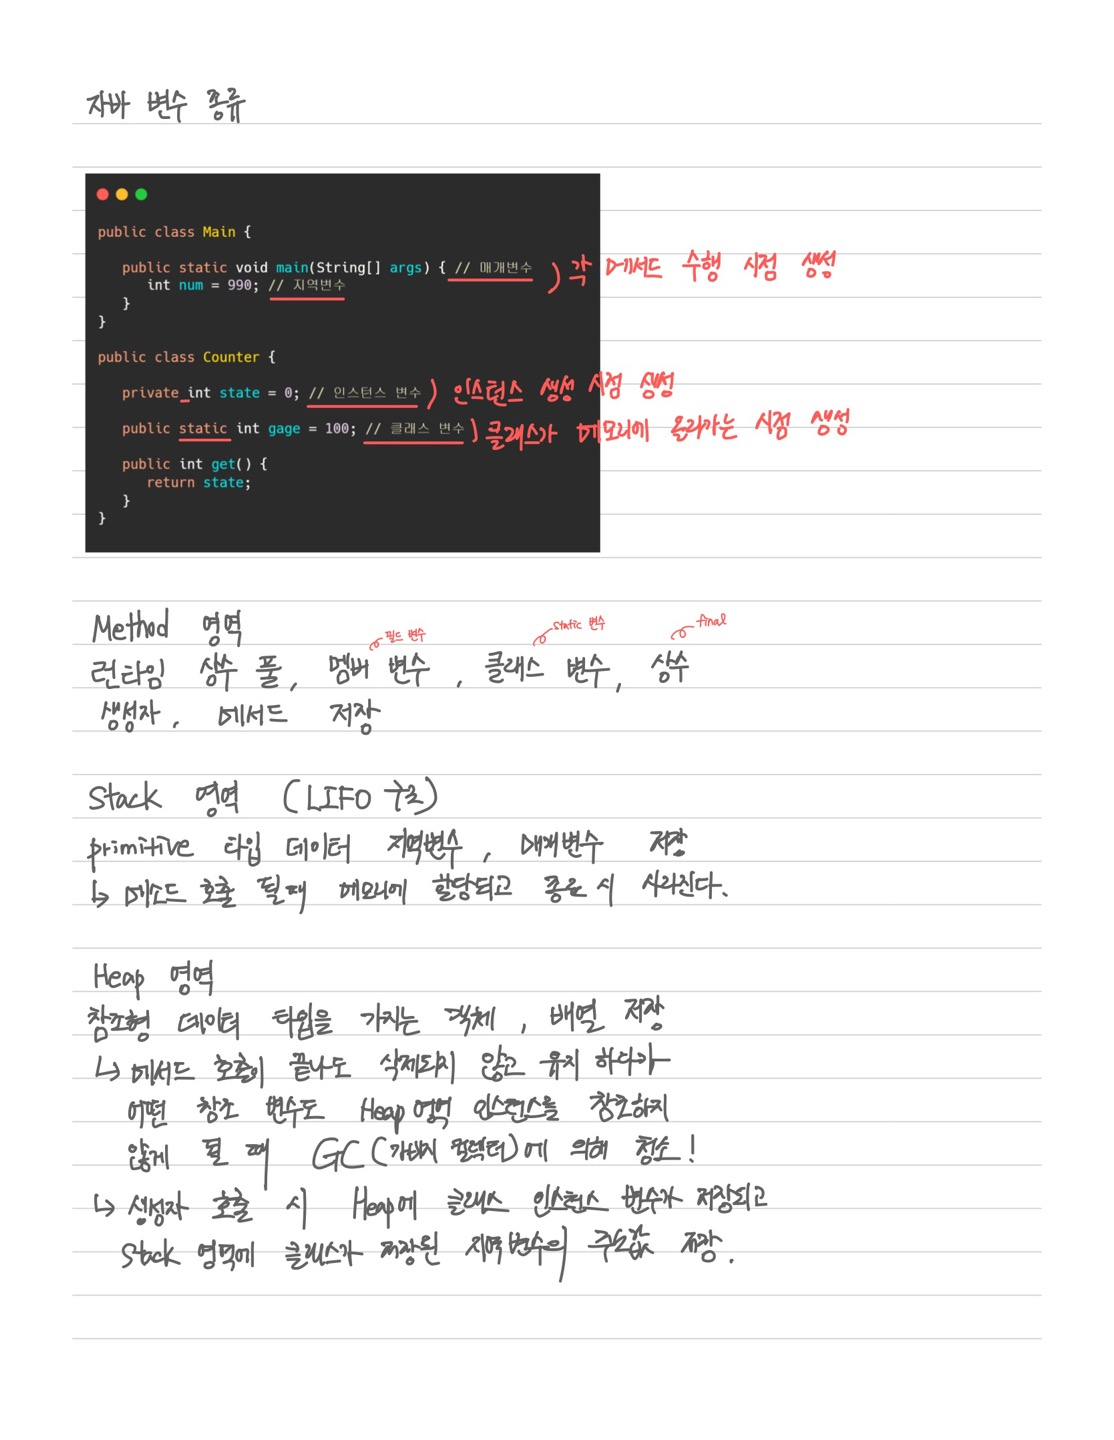 자바 변수 종류
public class Main {
public static void main(String[] args) { // 매개변수 ) 각 메서드 수행 시점 생성
int num = 990; // 지역변수
}
}
public class Counter {
private int state = 0; // 인스턴스 변수 ) 인스턴스 생성 시점 생성
public static int gage = 100; // 클래스 변수 ) 클래스가 메모리에 올라가는 시점 생성
public int get() {
return state;
}
}
Method 영역
필드 변수 static 변수 final
런타임 상수 풀, 멤버 변수, 클래스 변수, 상수
생성자, 메서드 저장
Stack 영역 (LIFO 구조)
primitive 타입 데이터 지역변수, 매개변수 저장
↳ 메소드 호출 될때 메모리에 할당되고 종료 시 사라진다.
Heap 영역
참조형 데이터 타입을 가지는 객체, 배열 저장
↳ 메서드 호출이 끝나도 삭제되지 않고 유지 하다가
어떤 참조 변수도 Heap 영역 인스턴스를 참조하지
않게 될 때 GC(가비지 컬렉터)에 의해 청소!
↳ 생성자 호출 시 Heap에 클래스 인스턴스 변수가 저장되고
Stack 영역에 클래스가 저장된 지역변수의 주소값 저장.